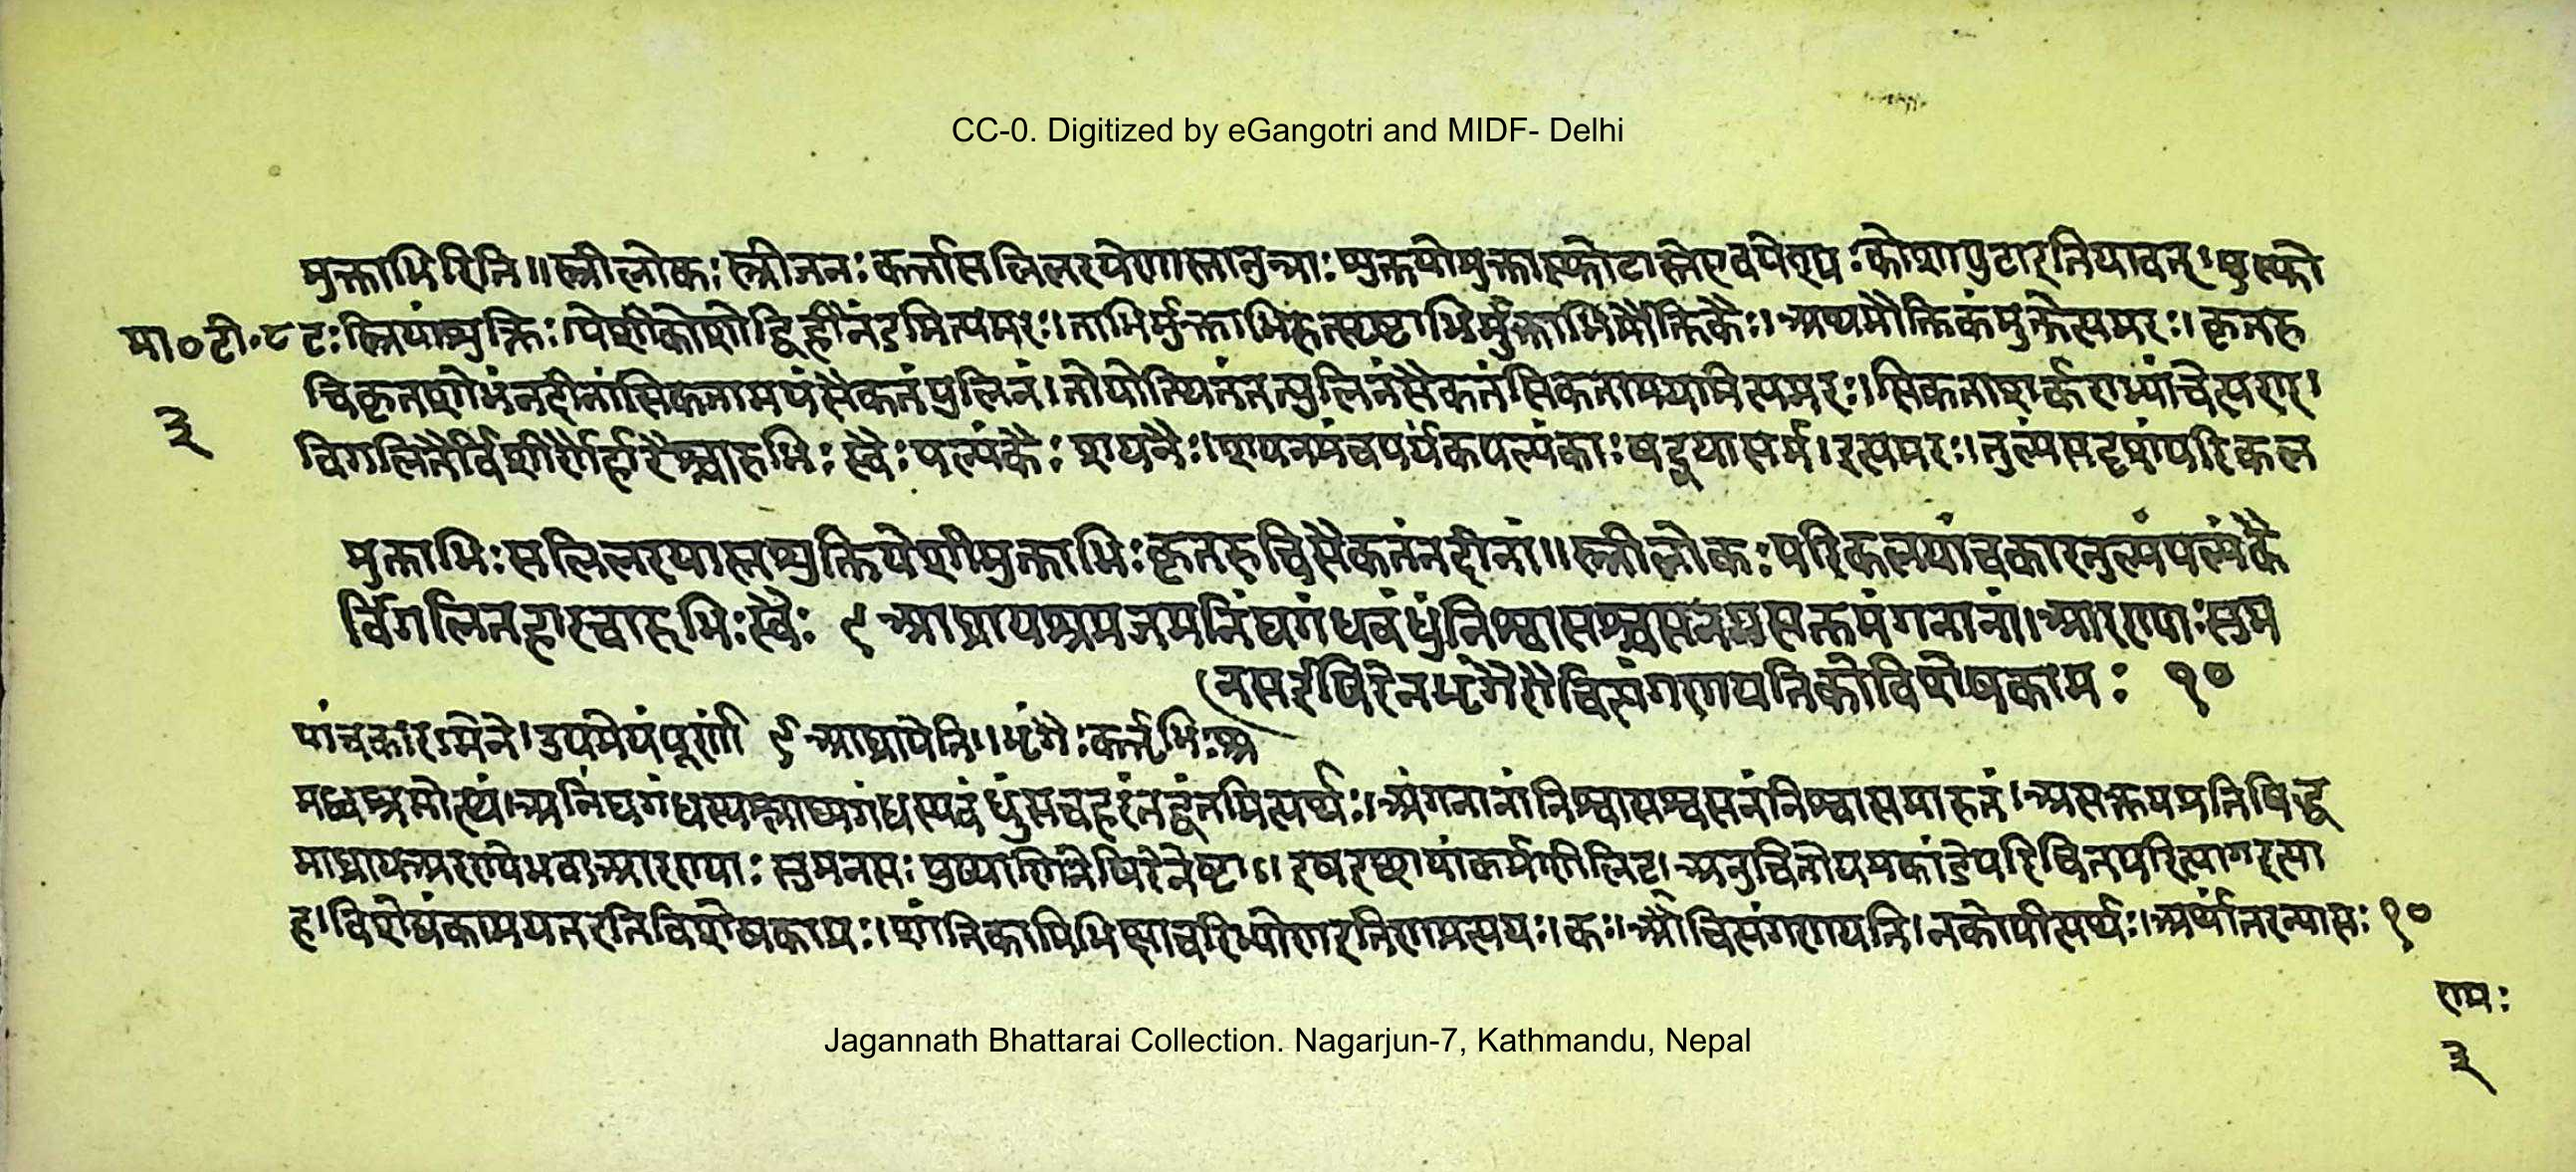 CC-0. Digitized by eGangotri and MIDF- Delhi
मुक्ताभिरिति॥स्त्रीलोकः स्त्रीजनः कर्त्तासलिलरयेणास्तानुन्नाः शुक्तयोमुक्तास्फोटास्तेएवपेश्यः कोशापुटाइतियावत्।मुस्फो
मा०टी०८ टः स्त्रियांशुक्तिः।पेशीकोशोद्विहीनेंडमित्यमरः।ताभिर्मुक्ताभिरुत्सृष्टाभिर्मुक्ताभिर्मौक्तिकैः।अथमौक्तिकंमुक्तेत्यमरः।कृतरु
चिकृतशोभंनदीनांसिकतामयंसैकतंपुलिनं।तोयोत्थितंतत्पुलिनंसैकतंसिकतामयमित्यमरः।सिकताशर्कराभ्यांचेत्यण्।
३
विगलितैर्विशीर्णैर्हारैश्चारुभिः स्वैः पल्यंकैः शयनैः।शयनमंचपर्यंकपल्यंकाः खट्वयासमं।इत्यमरः।तुल्यंसदृशंपरिकल
मुक्ताभिःसलिलरयास्तशुक्तिपेशीमुक्ताभिःकृतरुचिसैकतंनदीनां॥स्त्रीलोकःपरिकलयांचकारतुल्यंपल्यंकै
र्विगलितहारचारुभिःस्वैः ९ आघ्रायश्रमजमनिंद्यगंधबंधुंनिश्वासश्वसनमसक्तमंगनानां।आरण्याःसुम
नसईषिरेनभृंगैरौचित्यंगणयतिकोविशेषकामः १०
यांचकार।मेने।उपमेयंपूर्णा ९ आघ्रायेति॥भृंगैःकर्त्तृभिः।श्र
मध्वश्रमोत्थं।अनिंद्यगंधस्यश्लाघ्यगंधस्यबंधुंसचहरंतद्वंतमित्यर्थः।अंगनानांनिश्वासश्वसनंनिश्वासमारुतं।असक्तमप्रतिषिद्ध
माघ्रायअरण्येभवाआरण्याः सुमनसः पुष्पाणिनेषिरेनेष्टाः।इषइच्छायांकर्मणिलिट्।अनुचितोयमकांडेपरिचितपरित्यागइत्या
ह।विशेषंकामयतइतिविशेषकामः।शीलिकामिभिक्षाचरिभ्योणइतिणप्रत्ययः।कः।औचित्यंगणयति।नकोपीत्यर्थः।अर्थांतरन्यासः १०
रामः
३
Jagannath Bhattarai Collection. Nagarjun-7, Kathmandu, Nepal